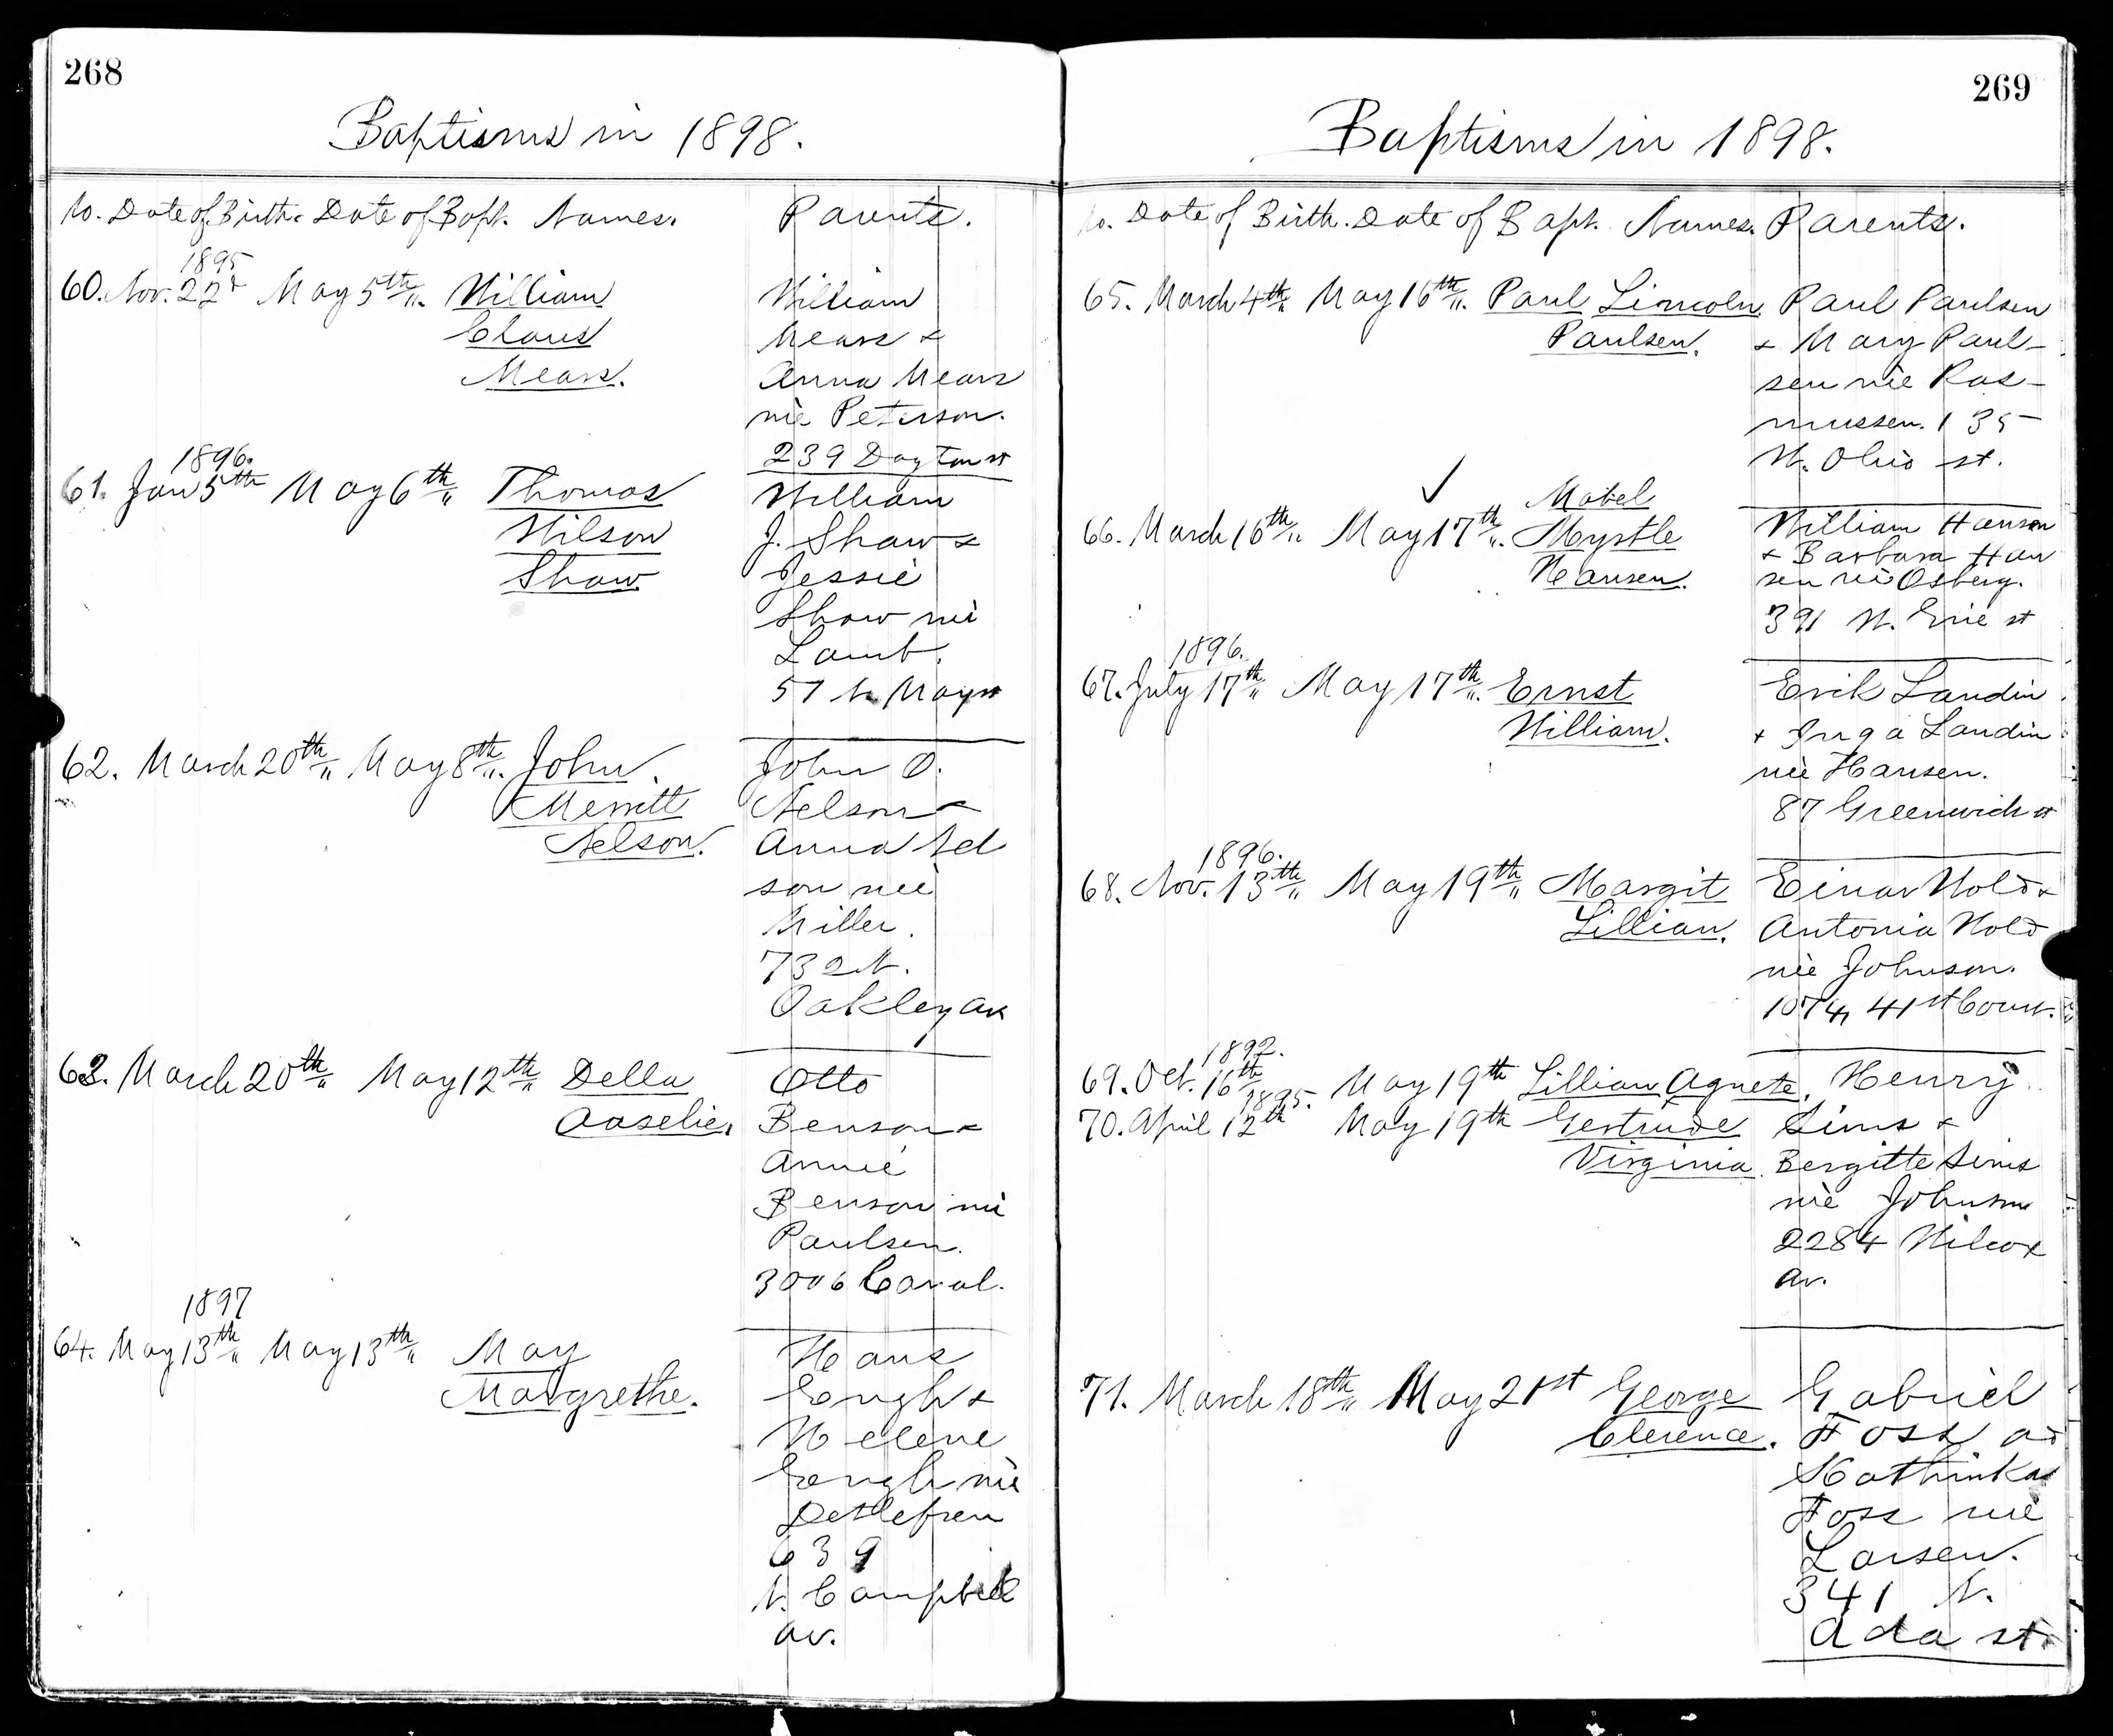 268
Baptisms in 1898.
No. Date of Birth. Date of Bapt. Names. Parents.
1895
60. Nov. 22d May 5th. William William
Claus Mears &
Mears. Anna Mears
née Peterson.
239 Dayton st
1896.
61. Jan 5th May 6th Thomas William
Wilson J. Shaw &
Shaw. Jessie
Shaw née
Lamb.
57 N. May st
62. March 20th May 8th. John John O.
Merritt Nelson &
Nelson. Anna Nel
son née
Miller.
732 N.
Oakley av
63. March 20th May 12th Della Otto
Aaselie. Benson &
Annie
Benson née
Paulsen.
3006 Canal.
1897
64. May 13th May 13th May Hans
Margrethe. &
Helene
née
Detlefsen
639
N. Campbell
av.
269
Baptisms in 1898.
No. Date of Birth. Date of Bapt. Names. Parents.
65. March 4th May 16th. Paul Lincoln Paul Paulsen
Paulsen. & Mary Paul-
sen née Ras-
mussen. 135
W. Ohio st.
✓ Mabel
66. March 16th. May 17th. Myrtle William Hanson
Hansen. & Barbara Han
sen née Osberg.
391 W. Erie st
1896.
67. July 17th May 17th. Ernst Erik Landin
William. & Inga Landin
née Hansen.
87 Greenwich st
1896.
68. Nov. 13th May 19th Margit Einar Wold &
Lillian. Antonia Wold
née Johnson.
1074 41st Court.
1892.
69. Oct. 16th May 19th Lillian Agnete. Henry
1895.
70. April 12th May 19th Gertrude Sims &
Virginia. Bergitte Sims
née Johnson
2284 Wilcox
av.
71. March 18th May 21st George Gabriel
Clerence. Foss ad
Kathinka
Foss née
Larsen.
341 N.
Ada st.